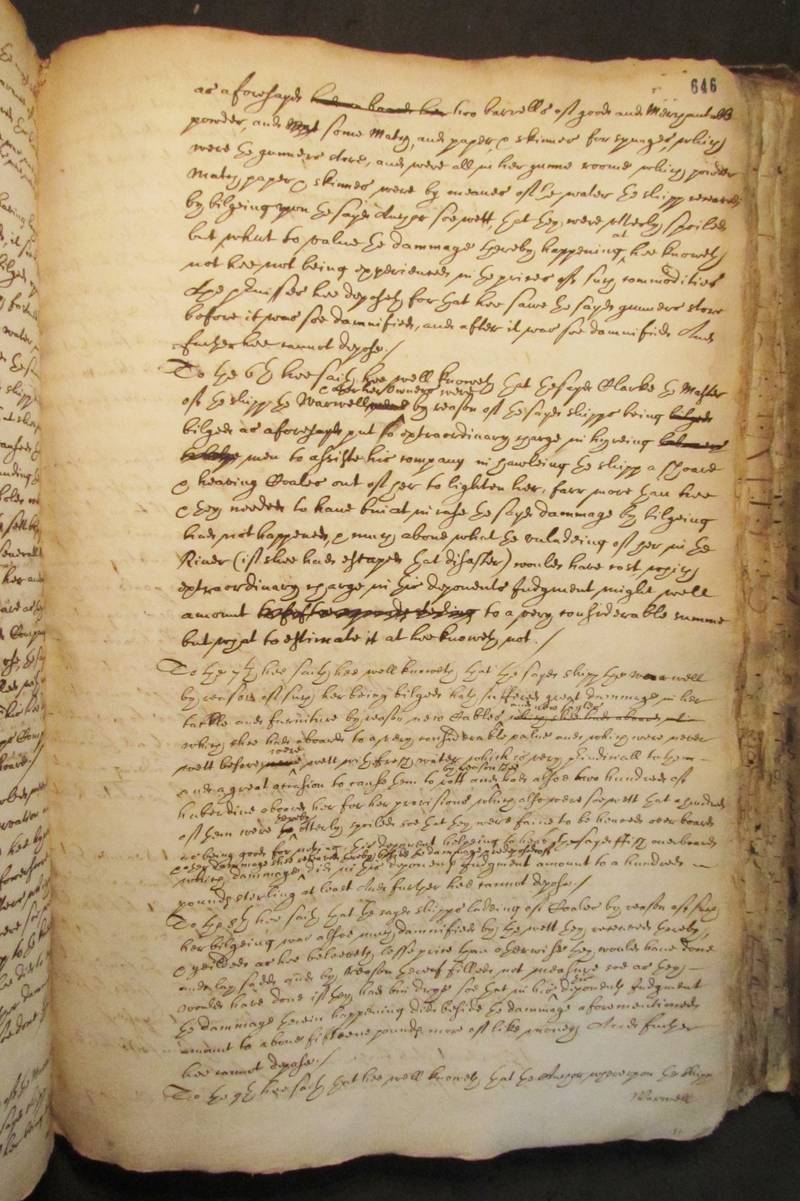 646
as aforesayd had on board her two barrells of good and Merchantable
powder, and some Match, and paper, & skinnes for spunges, which
were the gunners store, and were all in her gunne roome which powder
Match paper & skinnes were by meanes of the water the shipp received
by bilgeing upon the sayd Anchor soe wett, that they were utterly spoiled
but what to value the dammage thereby happening at hee knoweth
not hee not being experienced in the prices of such commodities
The premisses hee deposeth for that hee sawe the sayd gunners store
before it was soe damnified, and after it was soe damnified And
further hee cannot depose./
To the 6th hee saith hee well knoweth that the sayd Clarke the Master
& other her Owners were
of the shipp the Warwell by reason of the sayd shipps being bilged
bilged as aforesayd put to extraordinary charge in hyreing
men to assiste his company in hawleing the shipp a shoare
& heaving Coales out of her to lighten her, farr more than hee
& they needed to have bin at in case the sayd dammage by bilgeing
had not happened, & much above what the unladeing of her in the
River (if shee had escaped that disaster) would have cost which
extraordinary charge in his deponents Judgment might well
amount to a very considerable summe
but what to estimate it at hee knoweth not./
To the 7th hee saith hee well knoweth that the sayd shipp the Warwell
by reason of such her being bilged hath suffered great dammage in her
tackle and furniture by reason new Cables
which shee had aboard to a very considerable value and which were never
wett before were wett in fresh water which is very prejudiciall to them
and a great occasion to cause them to rott and had alsoe two hundred of
haberdine aboard her for her provisions which alsoe were soe wett that a hundred
of them were thereby utterly spoiled soe that they were faine to be heaved over board
as being good for nothing this deponent helpeing to heave the sayd fish overboard
which dammage did in his deponents Judgment amount to a hundred
pounds sterling at least And further hee cannot depose./
To the 8th hee saith that the sayd shipps ladeing of Coales by reason of such
her bilgeing was alsoe much damnified by the wett they received thereby,
& yeilded as hee beleeveth lesse price than otherwise they would have done
and by reason thereof filled not measure soe as they
would have done if they had bin drye soe that in his deponents Judgment
the dammage therein happening did beside the dammage aforementioned
amount to above fifteene pounds more of like money And further
hee cannot depose./
To the 9th hee saith that hee well knoweth that the Anchor whereupon the shipp
Warwell